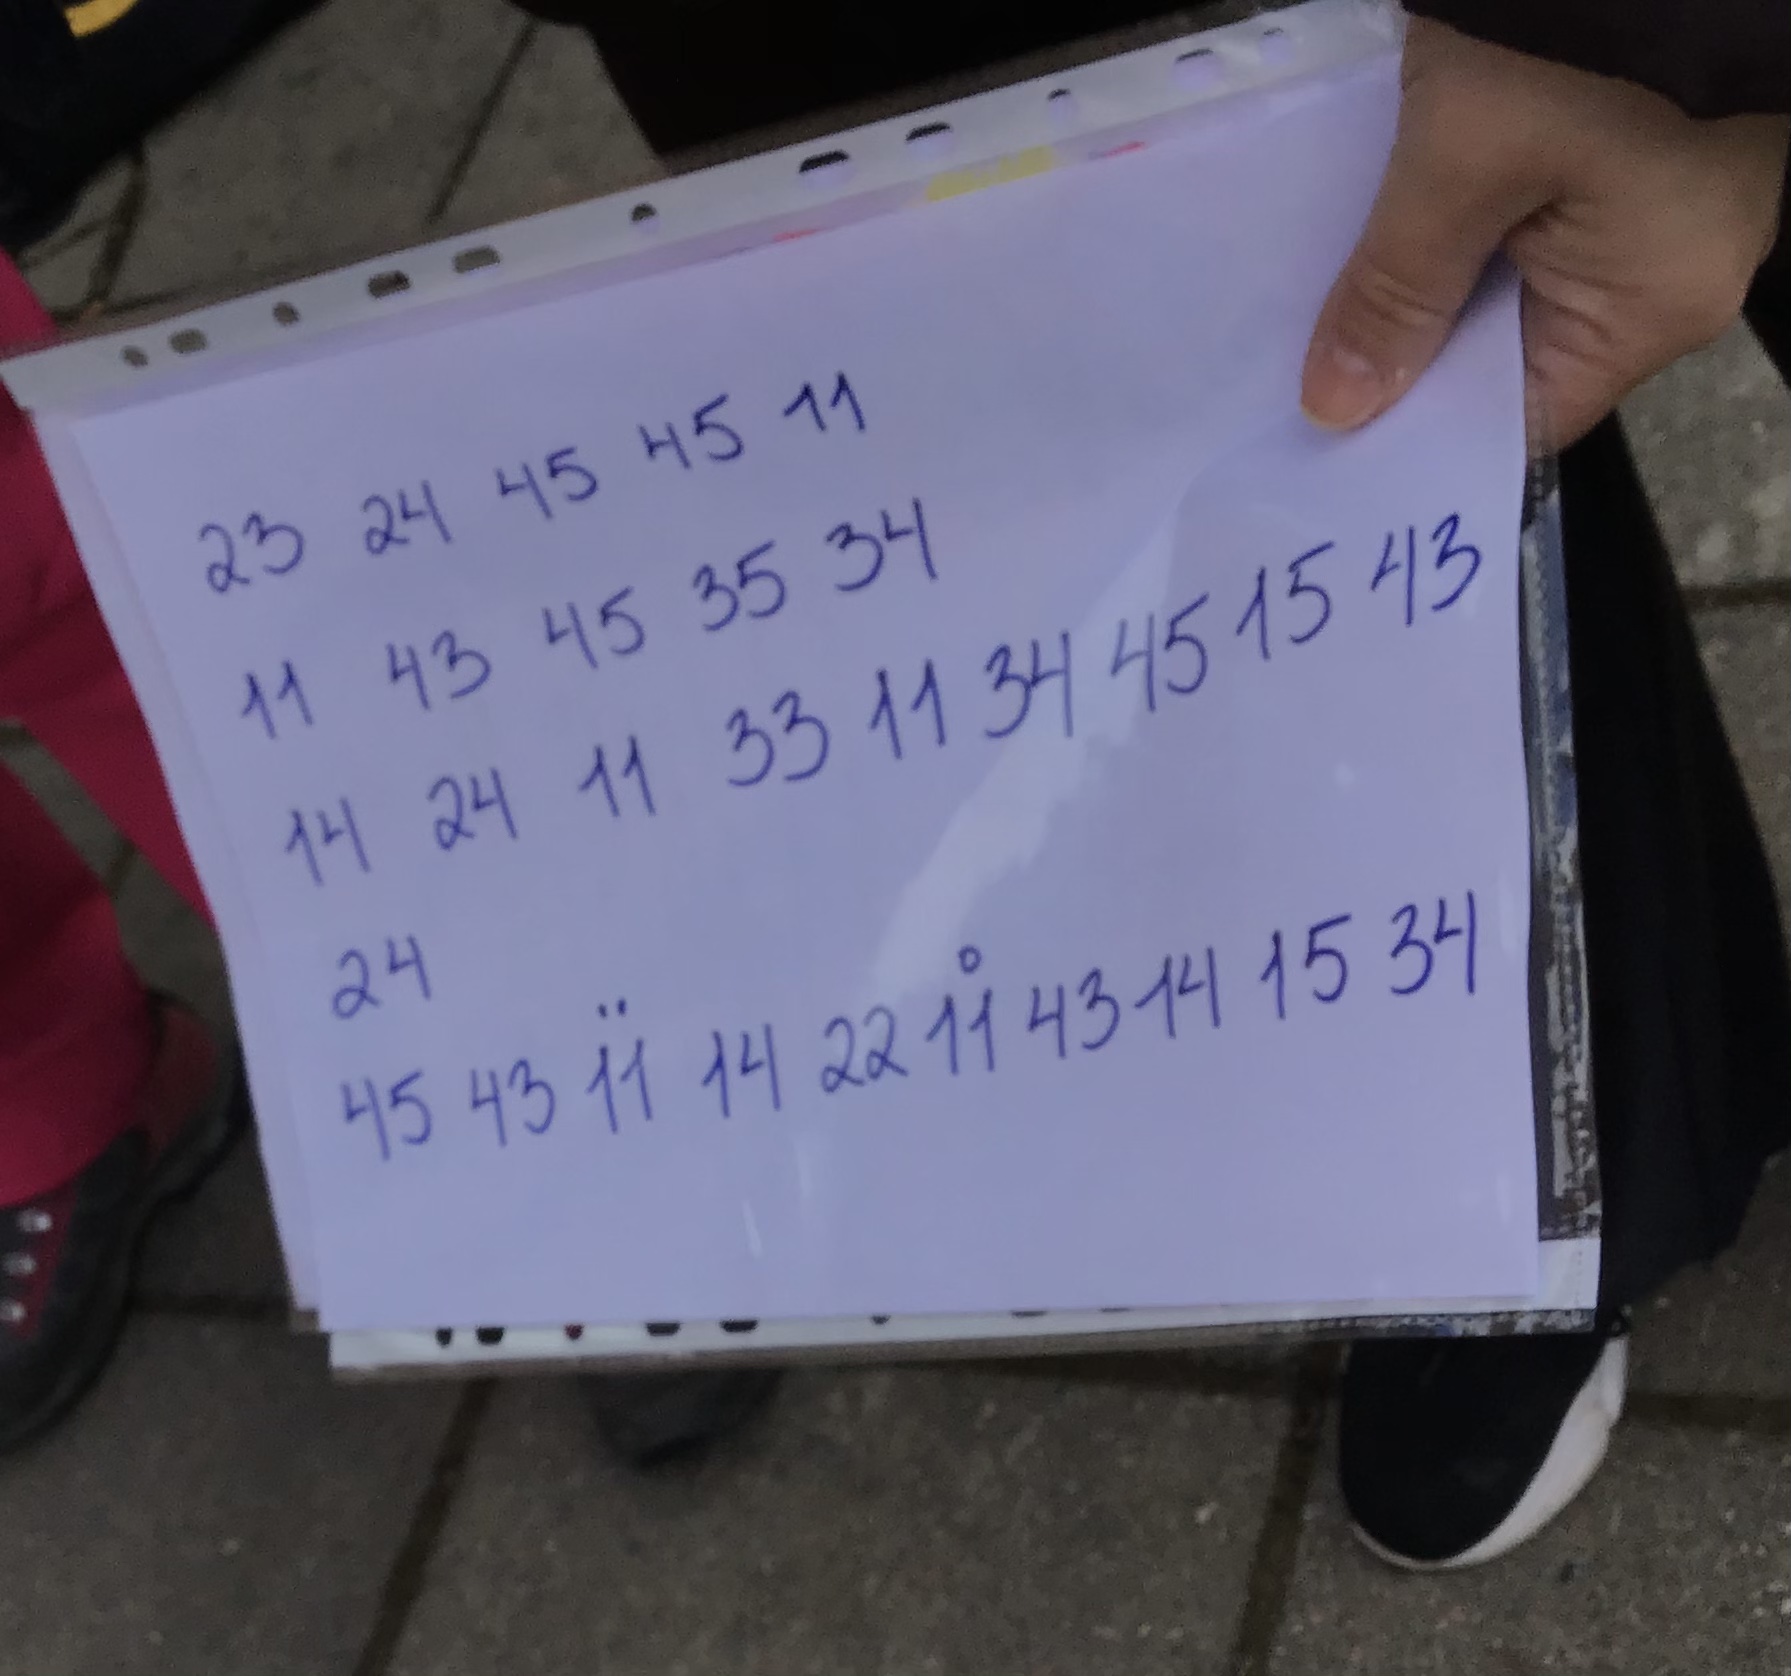 23 24 45 45 11
11 43 45 35 34
14 24 11 33 11 34 45 15 43
24
45 43 1̈1̈ 14 22 1̊1 43 14 15 34